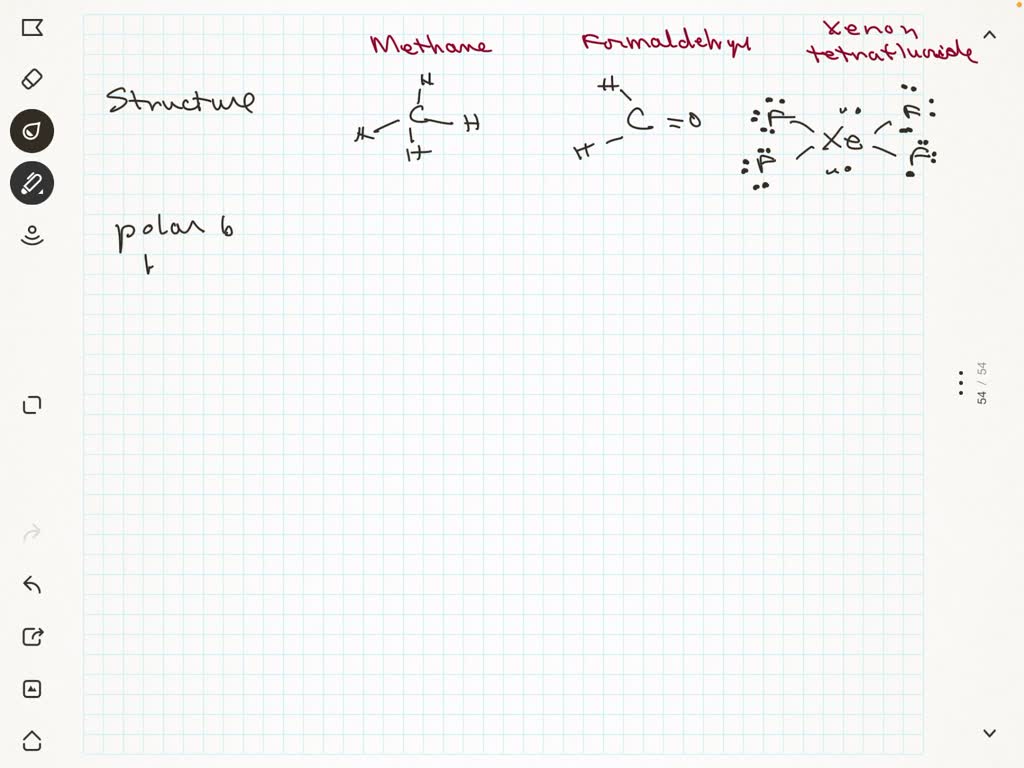 Methane
Formaldehyde
Xenon
tetrafluoride
Structure
H
H C H
H
H
C = O
H
F Xe F
F F
polar b
54 / 54